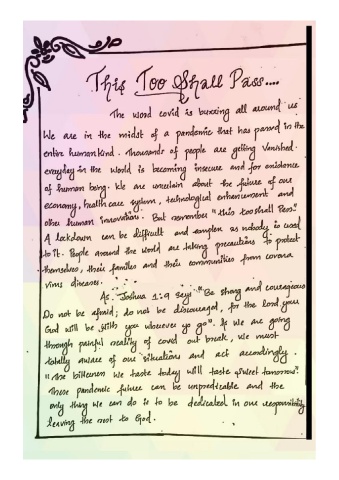 This Too Shall Pass....
The word covid is buzzing all around us
We are in the midst of a pandemic that has paned in the
entire human kind. Thousands of people are getting vanished.
everyday in the world is becoming insecure and for existence
of human being. We are uncertain about the future of our
economy, health care system, technological enhancement and
other human innovation. But remember "this too shall Pass".
A lockdown can be difficult and complex as nobody is used
to it. People around the world are taking precautions to protect
themselves, their families and their communities from corona
virus diseases.
As Joshua 1:9 says "Be strong and courageous
Do not be afraid; do not be discouraged, for the lord your
God will be with you wherever yo go". If we are going
through painful reality of covid out break, we must
totally aware of our situations and act accordingly.
"The bitterness we taste today will taste sweet tomorrow".
These pandemic future can be unpredicable and the
only thing we can do is to be dedicated in our responsibility
leaving the rest to God.